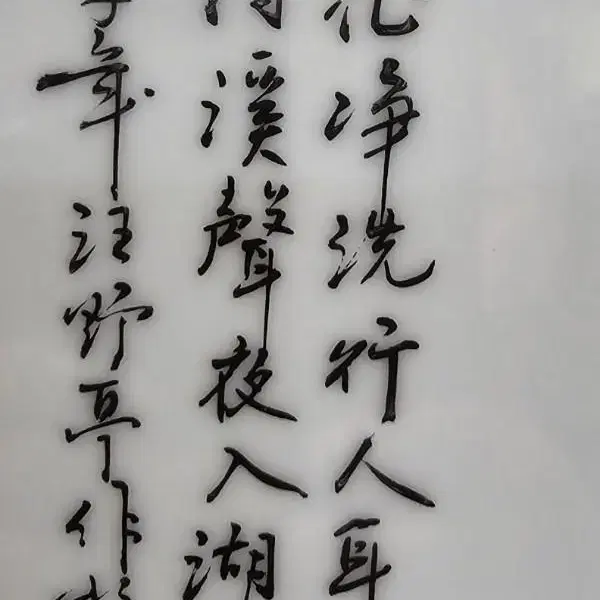 花净洗行人耳
溪聲夜入湖
年汪野亭作